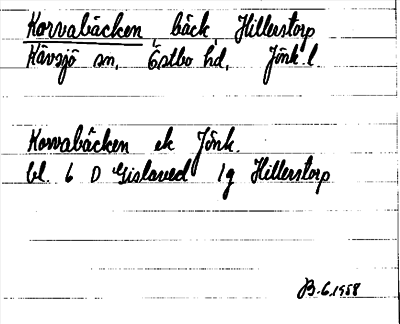 Korvabäcken, bäck, Hillerstorp
Kävsjö sn, Östbo hd, Jönk. l
Korvabäcken ek Jönk.
bl. 6 D Gislaved 1g Hillerstorp
B. 6. 1958